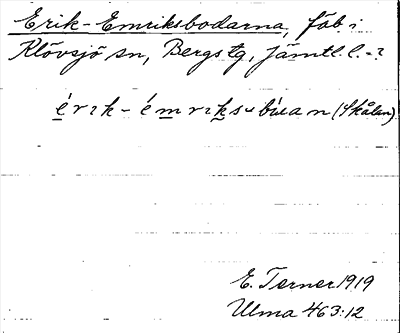 Erik-Emriksbodarna, fäb. i
Klövsjö sn, Bergs tg, Jämtl. l. - ?
érık-émrıks⌣búan (Skålan)
E. Terner 1919
Ulma 463:12